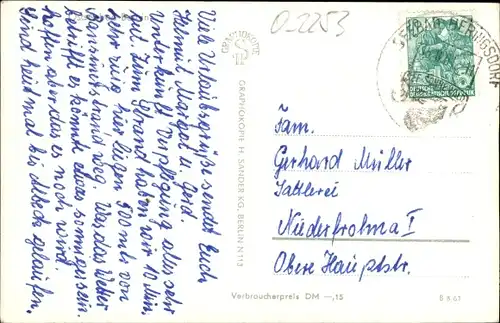 Viele Urlaubsgrüße sendet Euch
Helmut Margot u. Gerd.
Unterkunft Verpflegung alles sehr
gut. Zum Strand haben wir 10 Min,
sehr ruhig hier liegen 500 mtr von
Bansin's Strand weg. Was das Wetter
betrifft es könnte etwas sonniger sein.
hoffen aber das es noch wird.
Sind heut mal bis Ahlbeck gelaufen.
GRAPHOKOPIE
GRAPHOKOPIE H. SANDER KG. BERLIN N 113
0-2253
SEEBAD HERINGSDORF
DEUTSCHE
DEMOKRATISCHE REPUBLIK
Fam.
Gerhard Müller
Sattlerei
Niederfrohna I
Obere Hauptstr.
Verbraucherpreis DM —,15
B 8.61